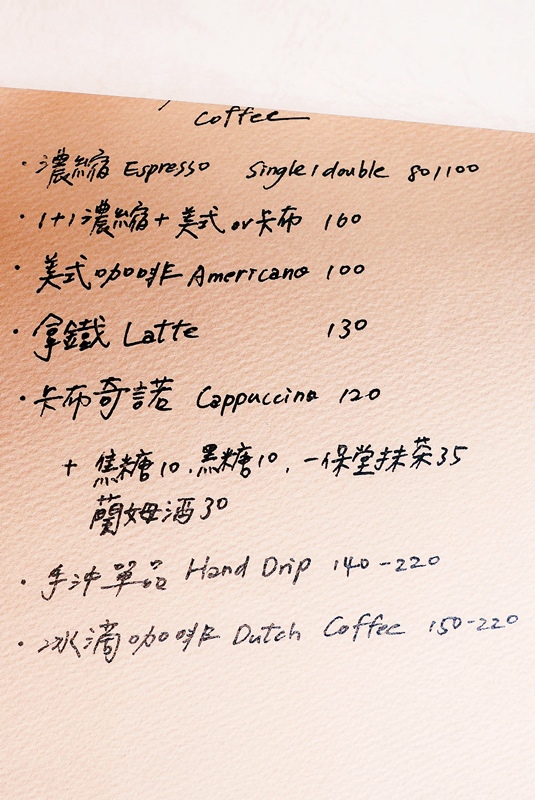 Coffee
· 濃縮 Espresso single/double 80/100
· 1+1濃縮+美式or卡布 160
· 美式咖啡 Americano 100
· 拿鐵 Latte 130
· 卡布奇諾 Cappuccino 120
+ 焦糖10、黑糖10、一保堂抹茶35
蘭姆酒30
· 手沖單品 Hand Drip 140-220
· 冰滴咖啡 Dutch Coffee 150-220